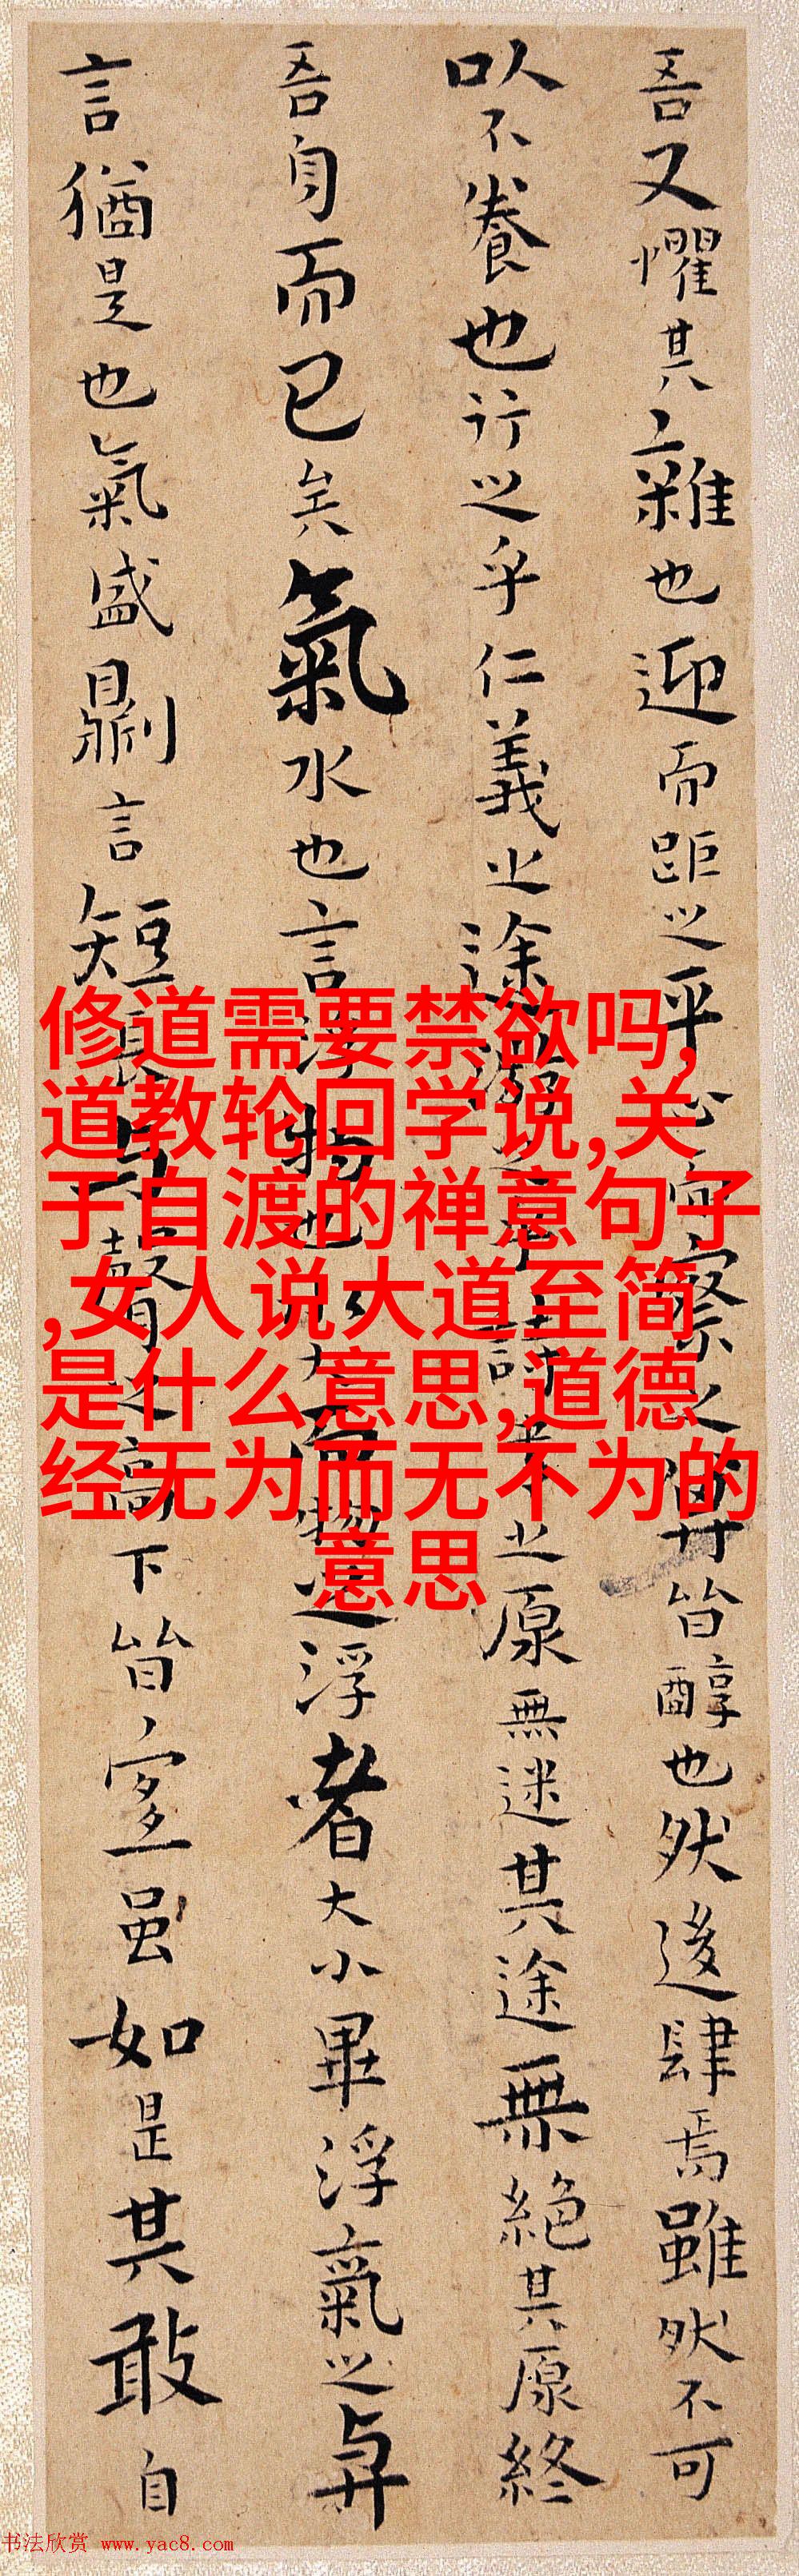 吾又懼其雜也迎而距之平心而察之皆醇也然後肆焉雖然不可
以不養也行之乎仁義之途游之乎詩書之原無迷其途無絕其原終
吾身而已矣氣水也言浮物也水大而物之浮者大小畢浮氣之與
言猶是也氣盛則言短長與聲之高下皆宜虽如是其敢自
修道需要禁欲吗,
道教轮回学说,关
于自渡的禅意句子
,女人说大道至简
是什么意思,道德
经无为而无不为的
意思
书法欣赏 www.yac8.com